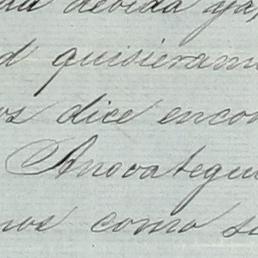 debida ya,
d quisieram
os dice encon
Anovategui
nos como su